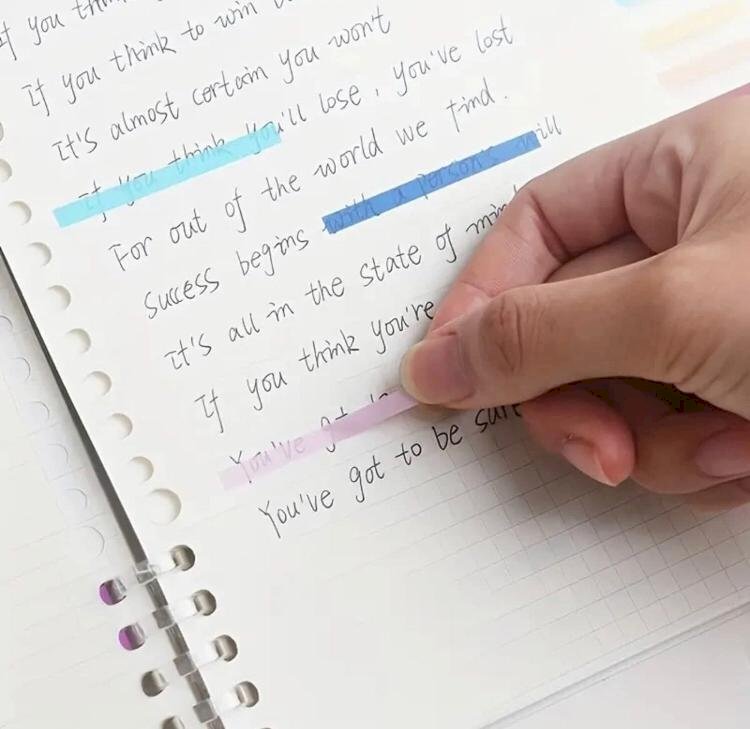 If you
If you think to win
It's almost certain you won't
If you think you'll lose, you've lost
For out of the world we find.
Success begins with a person's will
it's all in the state of mind
If you think you're
You've got
You've got to be sure